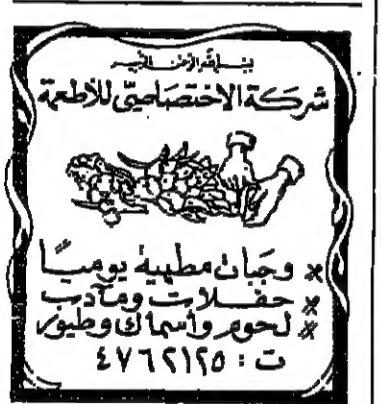 بسم الله الرحمن الرحيم
شركة الاختصاصي للأطعمة
* وجبات مطهية يومياً
* حفلات ومآدب
* لحوم وأسماك وطيور
ت : ٤٧٦٢١٢٥